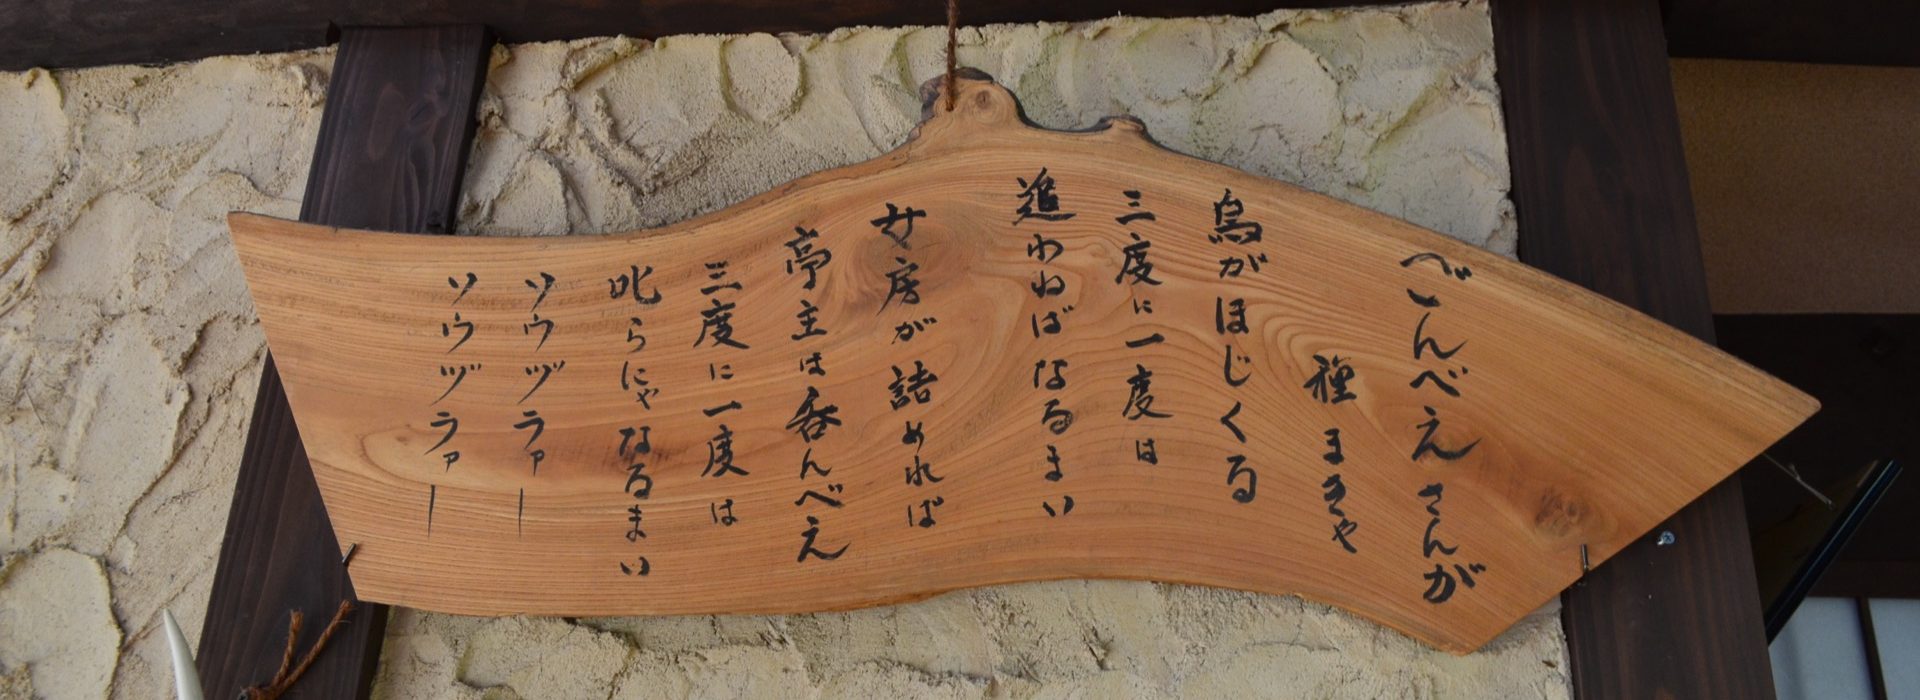 ごんべえさんが
種まきや
烏がほじくる
三度に一度は
追わねばなるまい
女房が詰めれば
亭主は呑んべえ
三度に一度は
叱らにゃなるまい
ソウヅラァー
ソウヅラァー